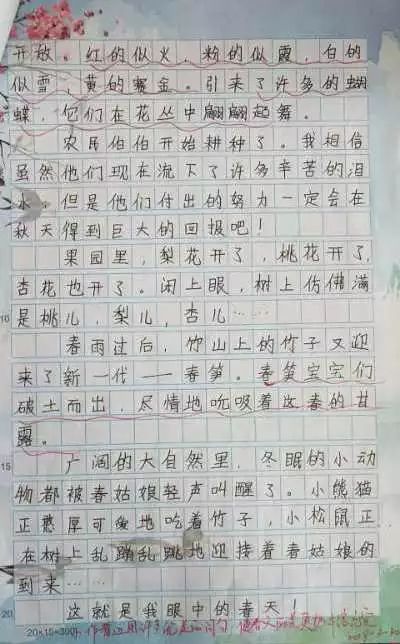 开放。红的似火，粉的似霞，白的
似雪，黄的赛金。引来了许多的蝴
蝶，它们在花丛中翩翩起舞。
农民伯伯开始耕种了。我相信
虽然他们现在流下了许多辛苦的泪
水，但是他们付出的努力一定会在
秋天得到巨大的回报吧！
果园里，梨花开了，桃花开了，
杏花也开了。闭上眼，树上仿佛满
10
是桃儿，梨儿，杏儿……
春雨过后，竹山上的竹子又迎
来了新一代——春笋。春笋宝宝们
破土而出，尽情地吮吸着这春的甘
露。
15
广阔的大自然里，冬眠的小动
物都被春姑娘轻声叫醒了。小熊猫
正憨厚可爱地吃着竹子，小松鼠正
在树上乱蹦乱跳地迎接着春姑娘的
到来……
20
这就是我眼中的春天！
20×15=300
作者运用许多优美的词句，使春天的